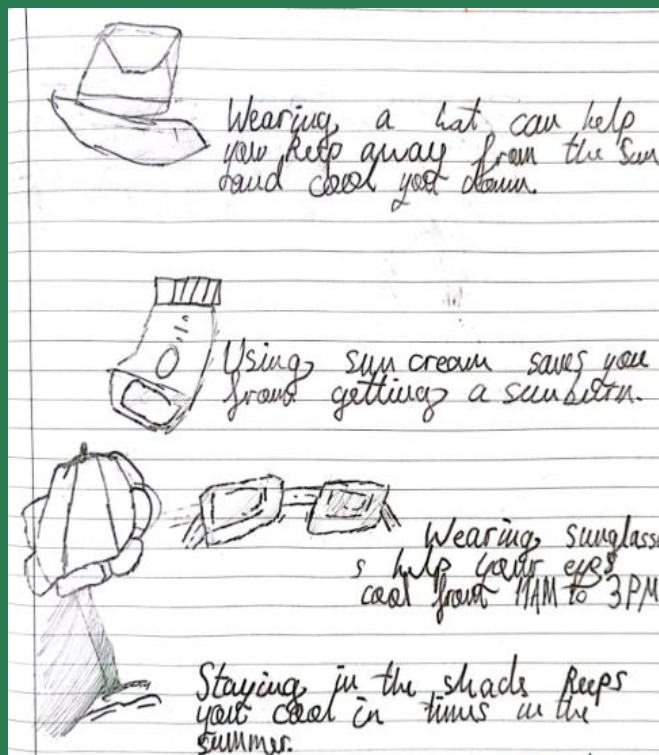 Wearing a hat can help
you keep away from the sun
and cool you down.
Using sun cream saves you
from getting a sunburn.
Wearing sunglasse
s help your eyes
cool from 11AM to 3PM
Staying in the shade keeps
you cool in times in the
summer.